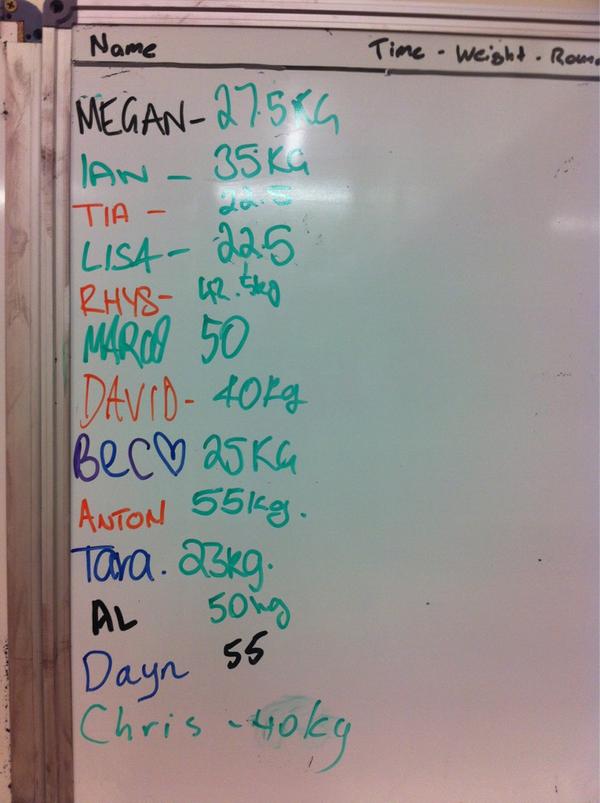 Name Time - Weight - Roun
MEGAN - 27.5KG
IAN - 35KG
TIA - 22.5
LISA - 22.5
RHYS - 42.5kg
MARCO 50
DAVID - 40kg
BEC♡ 25KG
ANTON 55kg.
Tara. 23kg.
AL 50kg
Dayn 55
Chris - 40kg